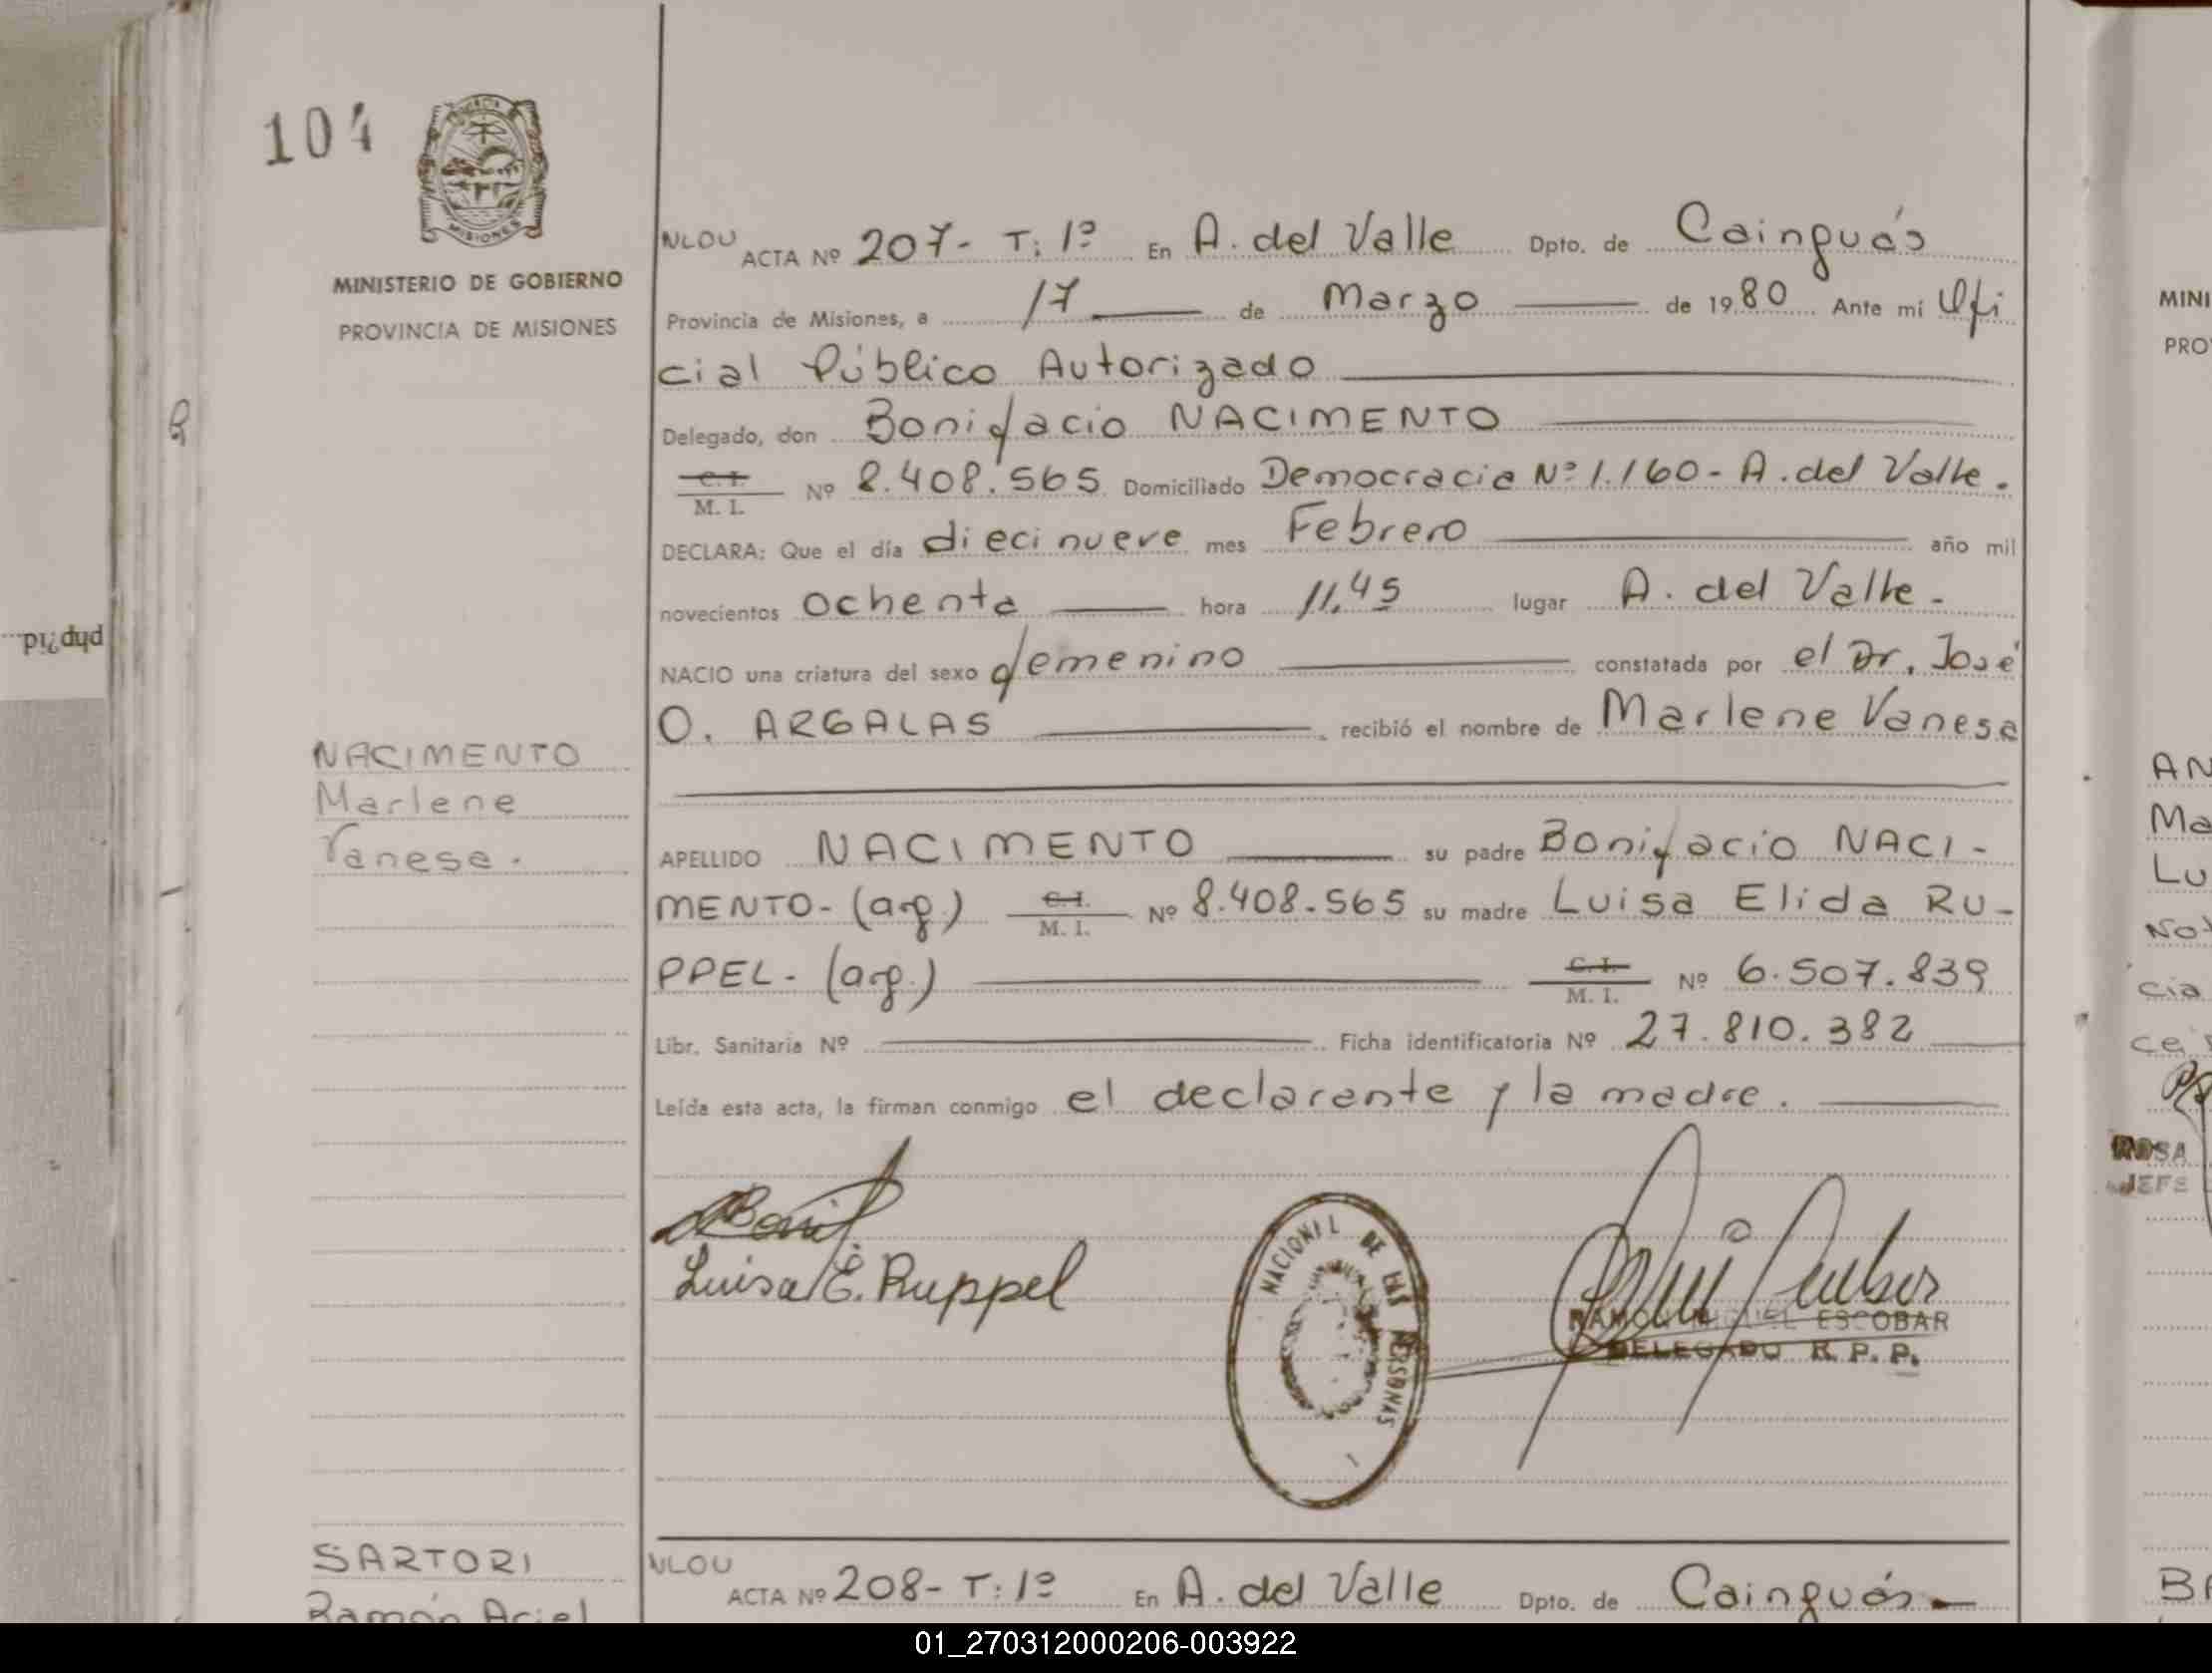 104
MISIONES
MINISTERIO DE GOBIERNO
PROVINCIA DE MISIONES
NACIMENTO
Marlene
Vanesa.
NLOU ACTA Nº 207- T: 1º En A. del Valle Dpto. de Cainguás
Provincia de Misiones, a 17 de Marzo de 1980 Ante mi Ofi
cial Público Autorizado
Delegado, don Bonifacio NACIMENTO
C.I. / M. I. Nº 8.408.565 Domiciliado Democracia Nº 1.160- A. del Valle.
DECLARA: Que el día diecinueve mes Febrero año mil
novecientos ochenta hora 11,45 lugar A. del Valle-
NACIO una criatura del sexo femenino constatada por el Dr. José
O. ARGALAS recibió el nombre de Marlene Vanesa
APELLIDO NACIMENTO su padre Bonifacio NACI-
MENTO- (arg.) C.I. / M. I. Nº 8.408.565 su madre Luisa Elida RU-
PPEL- (arg.) C.I. / M. I. Nº 6.507.839
Libr. Sanitaria Nº Ficha identificatoria Nº 27.810.382
Leída esta acta, la firman conmigo el declarante y la madre.
Luisa E. Ruppel
NACIONAL DE LAS PERSONAS
RAMON MIGUEL ESCOBAR
DELEGADO R. P. P.
SARTORI
Ramón Ariel
NLOU ACTA Nº 208- T: 1º En A. del Valle Dpto. de Cainguás-
php?id...
MINI
PRO
AN
Ma
Lu
No
cia
ce
JEFE
BA
01_270312000206-003922